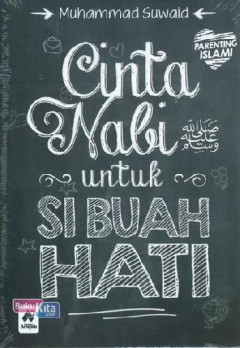 Muhammad Suwaid
PARENTING
ISLAMI
Cinta
Nabi
ﷺ
untuk
SI BUAH
HATI
Buku
Kita